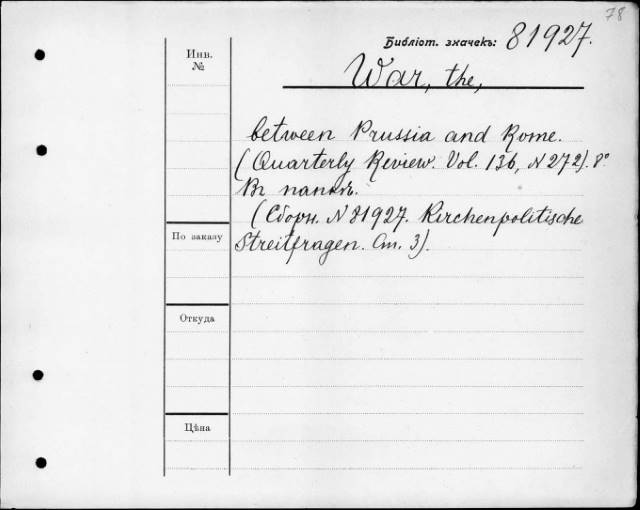 78
Библіот. значекъ: 81927.
Инв.
№
War, the,
between Prussia and Rome.
(Quarterly Review. Vol. 136, N 272). 8°
Въ папкѣ.
(Сборн. N 81927. Kirchenpolitische
По заказу
Streitfragen. Ст. 3).
Откуда
Цѣна